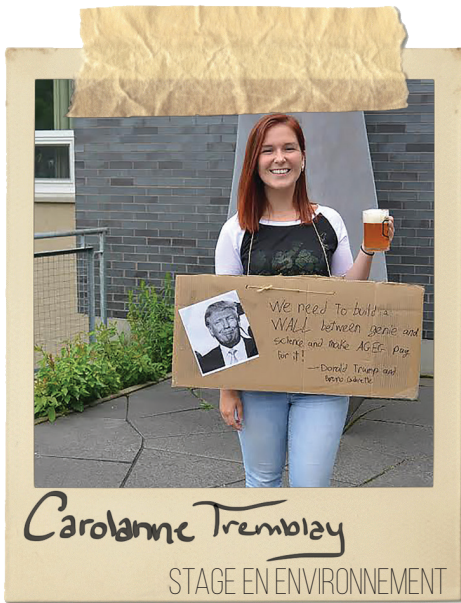 We need to build a
WALL between genie and
science and make AGEG pay
for it!
—Donald Trump and
Carolanne Tremblay
STAGE EN ENVIRONNEMENT